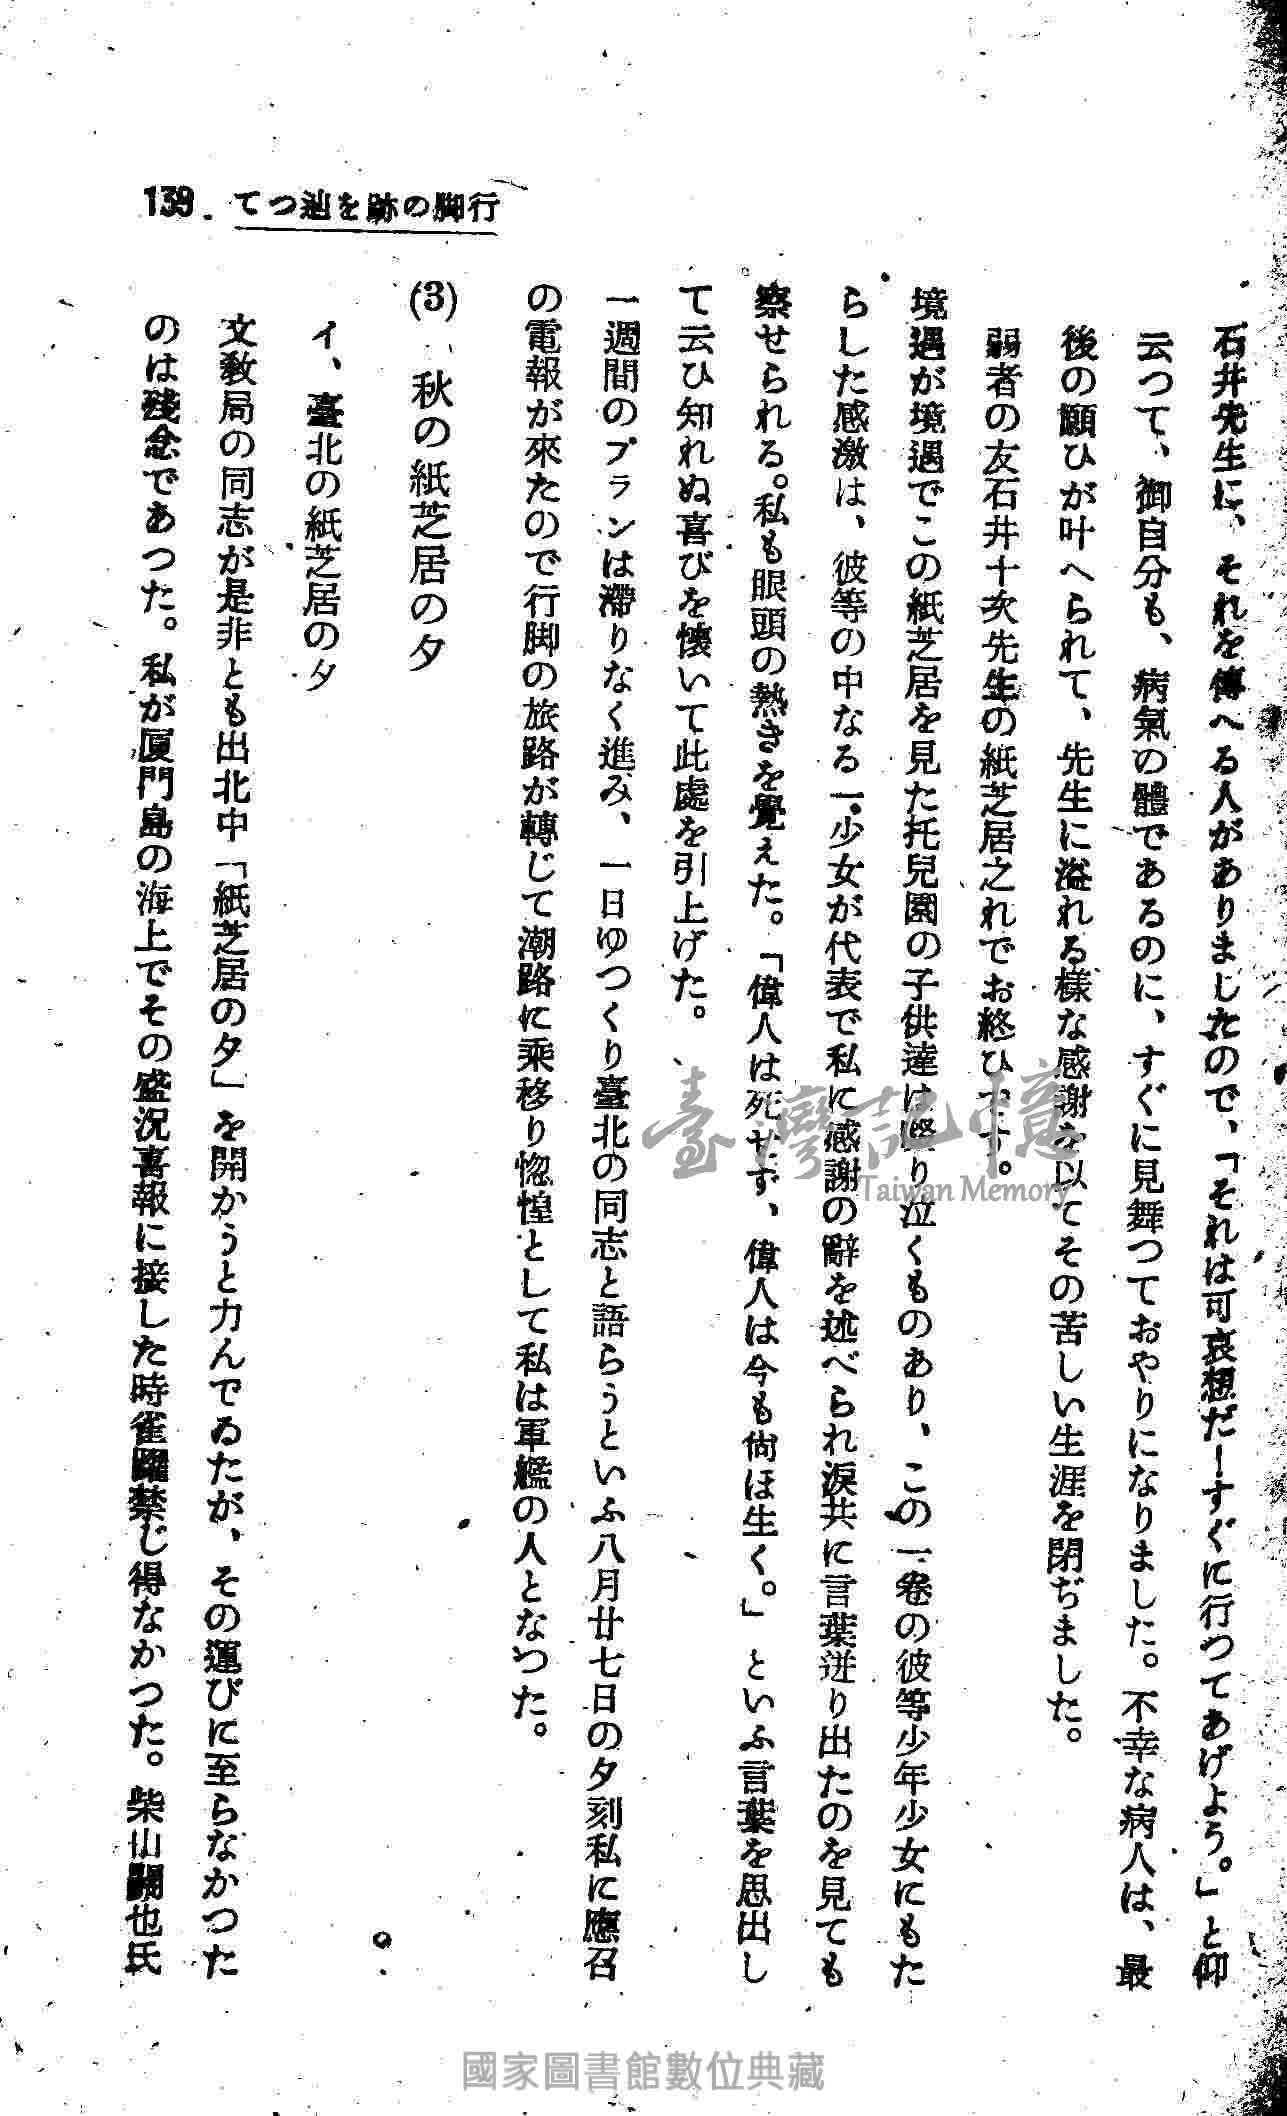 139. てつ辿を跡の脚行
石井先生に、それを傳へる人がありましたので、「それは可哀想だーすぐに行つてあげよう。」と仰
云つて、御自分も、病氣の體であるのに、すぐに見舞つておやりになりました。不幸な病人は、最
後の願ひが叶へられて、先生に溢れる樣な感謝を以てその苦しい生涯を閉ぢました。
弱者の友石井十次先生の紙芝居之れでお終ひです。
境遇が境遇でこの紙芝居を見た托兒園の子供達は啜り泣くものあり、この一卷の彼等少年少女にもた
らした感激は、彼等の中なる一少女が代表で私に感謝の辭を述べられ淚共に言葉迸り出たのを見ても
察せられる。私も眼頭の熱きを覺えた。「偉人は死せず、偉人は今も尙ほ生く。」といふ言葉を思出し
て云ひ知れぬ喜びを懷いて此處を引上げた。
一週間のプランは滯りなく進み、一日ゆつくり臺北の同志と語らうといふ八月廿七日の夕刻私に應召
の電報が來たので行脚の旅路が轉じて潮路に乘移り惚惶として私は軍艦の人となつた。
(3) 秋の紙芝居の夕
イ、臺北の紙芝居の夕
文敎局の同志が是非とも出北中「紙芝居の夕」を開かうと力んでゐたが、その運びに至らなかつた
のは殘念であつた。私が厦門島の海上でその盛況喜報に接した時雀躍禁じ得なかつた。柴山關也氏
臺灣記憶
Taiwan Memory
國家圖書館數位典藏